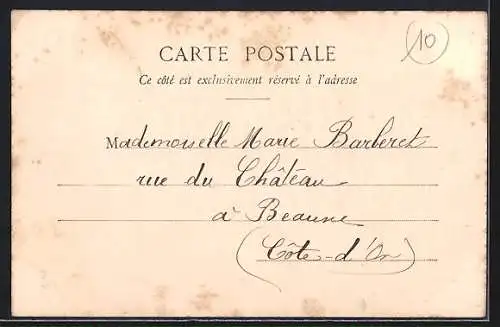 10
CARTE POSTALE
Ce côté est exclusivement réservé à l'adresse
Mademoiselle Marie Barberet
rue du Château
à Beaune
(Côte-d'Or)